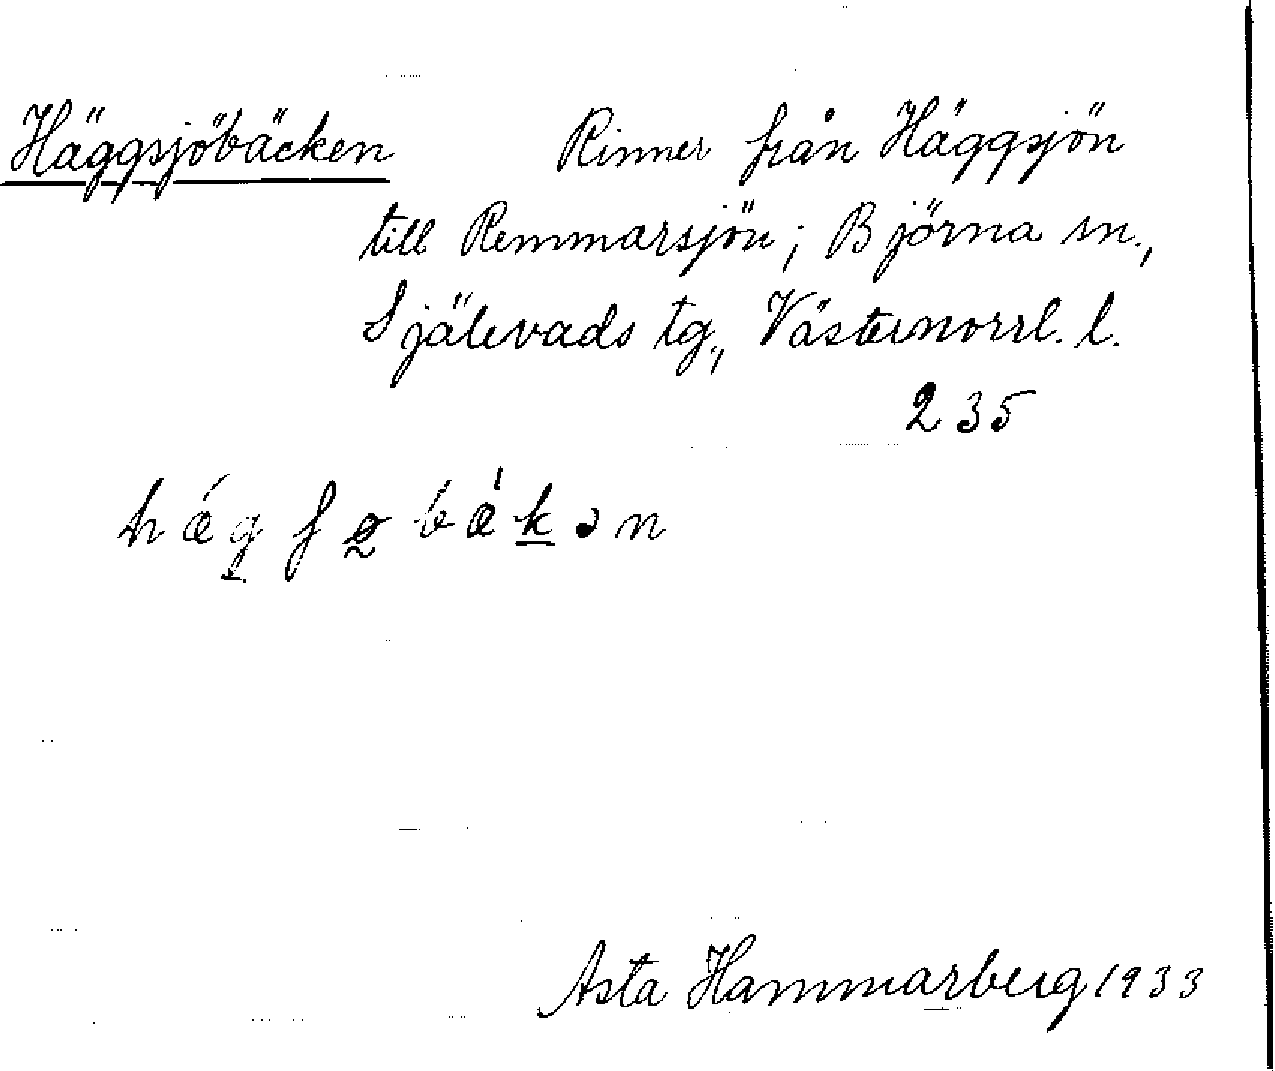 Häggsjöbäcken Rinner från Häggsjön
till Remmarsjön; Björna sn.,
Själevads tg., Västernorrl. l.
235
hǽg̲ʃø̰bæ̍k̲ən
Asta Hammarberg 1933